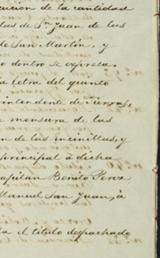 cucion de la cantidad
las de Sn Juan de las
de San Martin, y
o dentro se espresa
a letra del quinto
intendente de Tierras,
a mensura de las
on de las incinillas, y
principal á dicha
Capitan Benito Perez
Manuel San Juan, á
a el titulo despachado